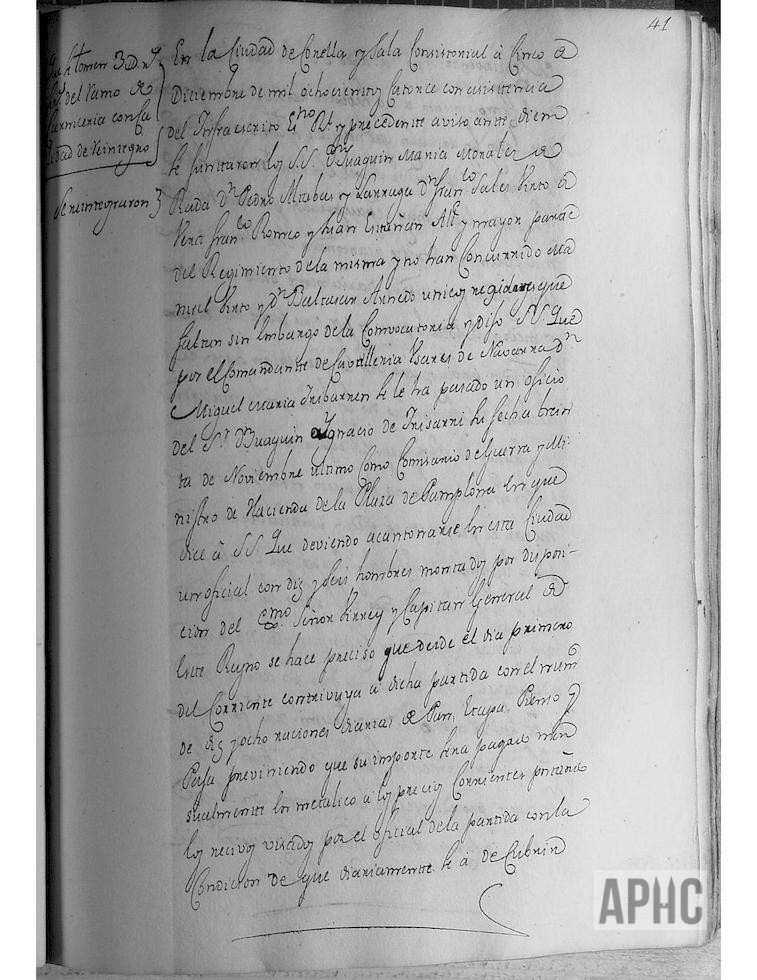 41
Que se tomen 3 D. rs
del Ramo de
Carniceria con ca
lidad de Reintegro
Se reintegraron
En la Ciudad de Corella y Sala Consistorial à Cinco de
Diciembre de mil ochocientos y Catorce con asistencia
del Infraescrito Esno Rl. y precedente aviso ante diem
se juntaron los SS. Dn Juaquin Maria Morales de
Rada Dn Pedro Miabas y Larraga Dn Franco Sales Virto de
Vera Franco Romeo y Juan Escuñan Alc y mayor parte
del Regimiento de la misma y no han Concurrido Ma
nuel Virto y Dn Baltasar Arnedo unicos regidores que
faltan sin Embargo de la Convocatoria y dijo S.S. Que
por el Comandante de Cavalleria Usares de Navarra Dn
Miguel Maria Iribarren se le ha pasado un oficio
del Sr. Dn Juaquin Ygnacio de Irisarri su fecha trein
ta de Noviembre ultimo Como Comisario de Guerra y Mi
nistro de Hacienda de la Plaza de Pamplona en que
dice à S.S. Que deviendo acantonarse en esta Ciudad
un oficial con diz y seis hombres montados por disposi-
cion del Exmo. Señor Virrey y Capitan General de
este Reyno se hace preciso que desde el dia primero
del Corriente contrivuya à dicha partida con el num
de diz y ocho raciones diarias de Pan, Etapa, Pienso y
Paja previniendo que su importe sera pagado men
sualmente en metalico a los precios Corrientes
los recivos visados por el oficial de la partida con la
Condicion de que diariamente se à de Cubrir
APHC